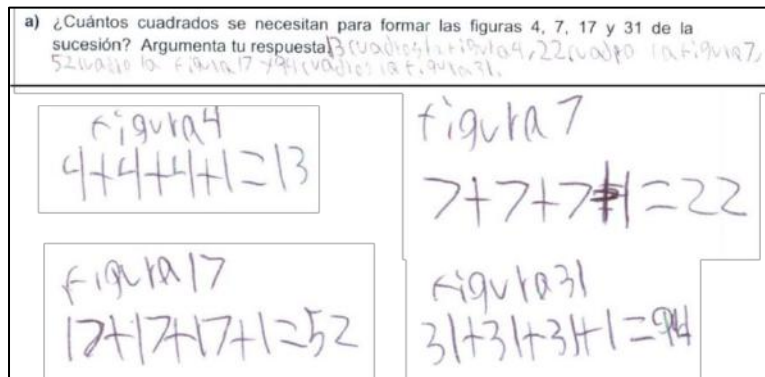 a) ¿Cuántos cuadrados se necesitan para formar las figuras 4, 7, 17 y 31 de la
sucesión? Argumenta tu respuesta. 13 cuadros la figura 4, 22 cuadro la figura 7,
52 cuadro la figura 17 y 94 cuadros la figura 31.
figura 4
4+4+4+1=13
figura 7
7+7+7+1=22
figura 17
17+17+17+1=52
figura 31
31+31+31+1=94